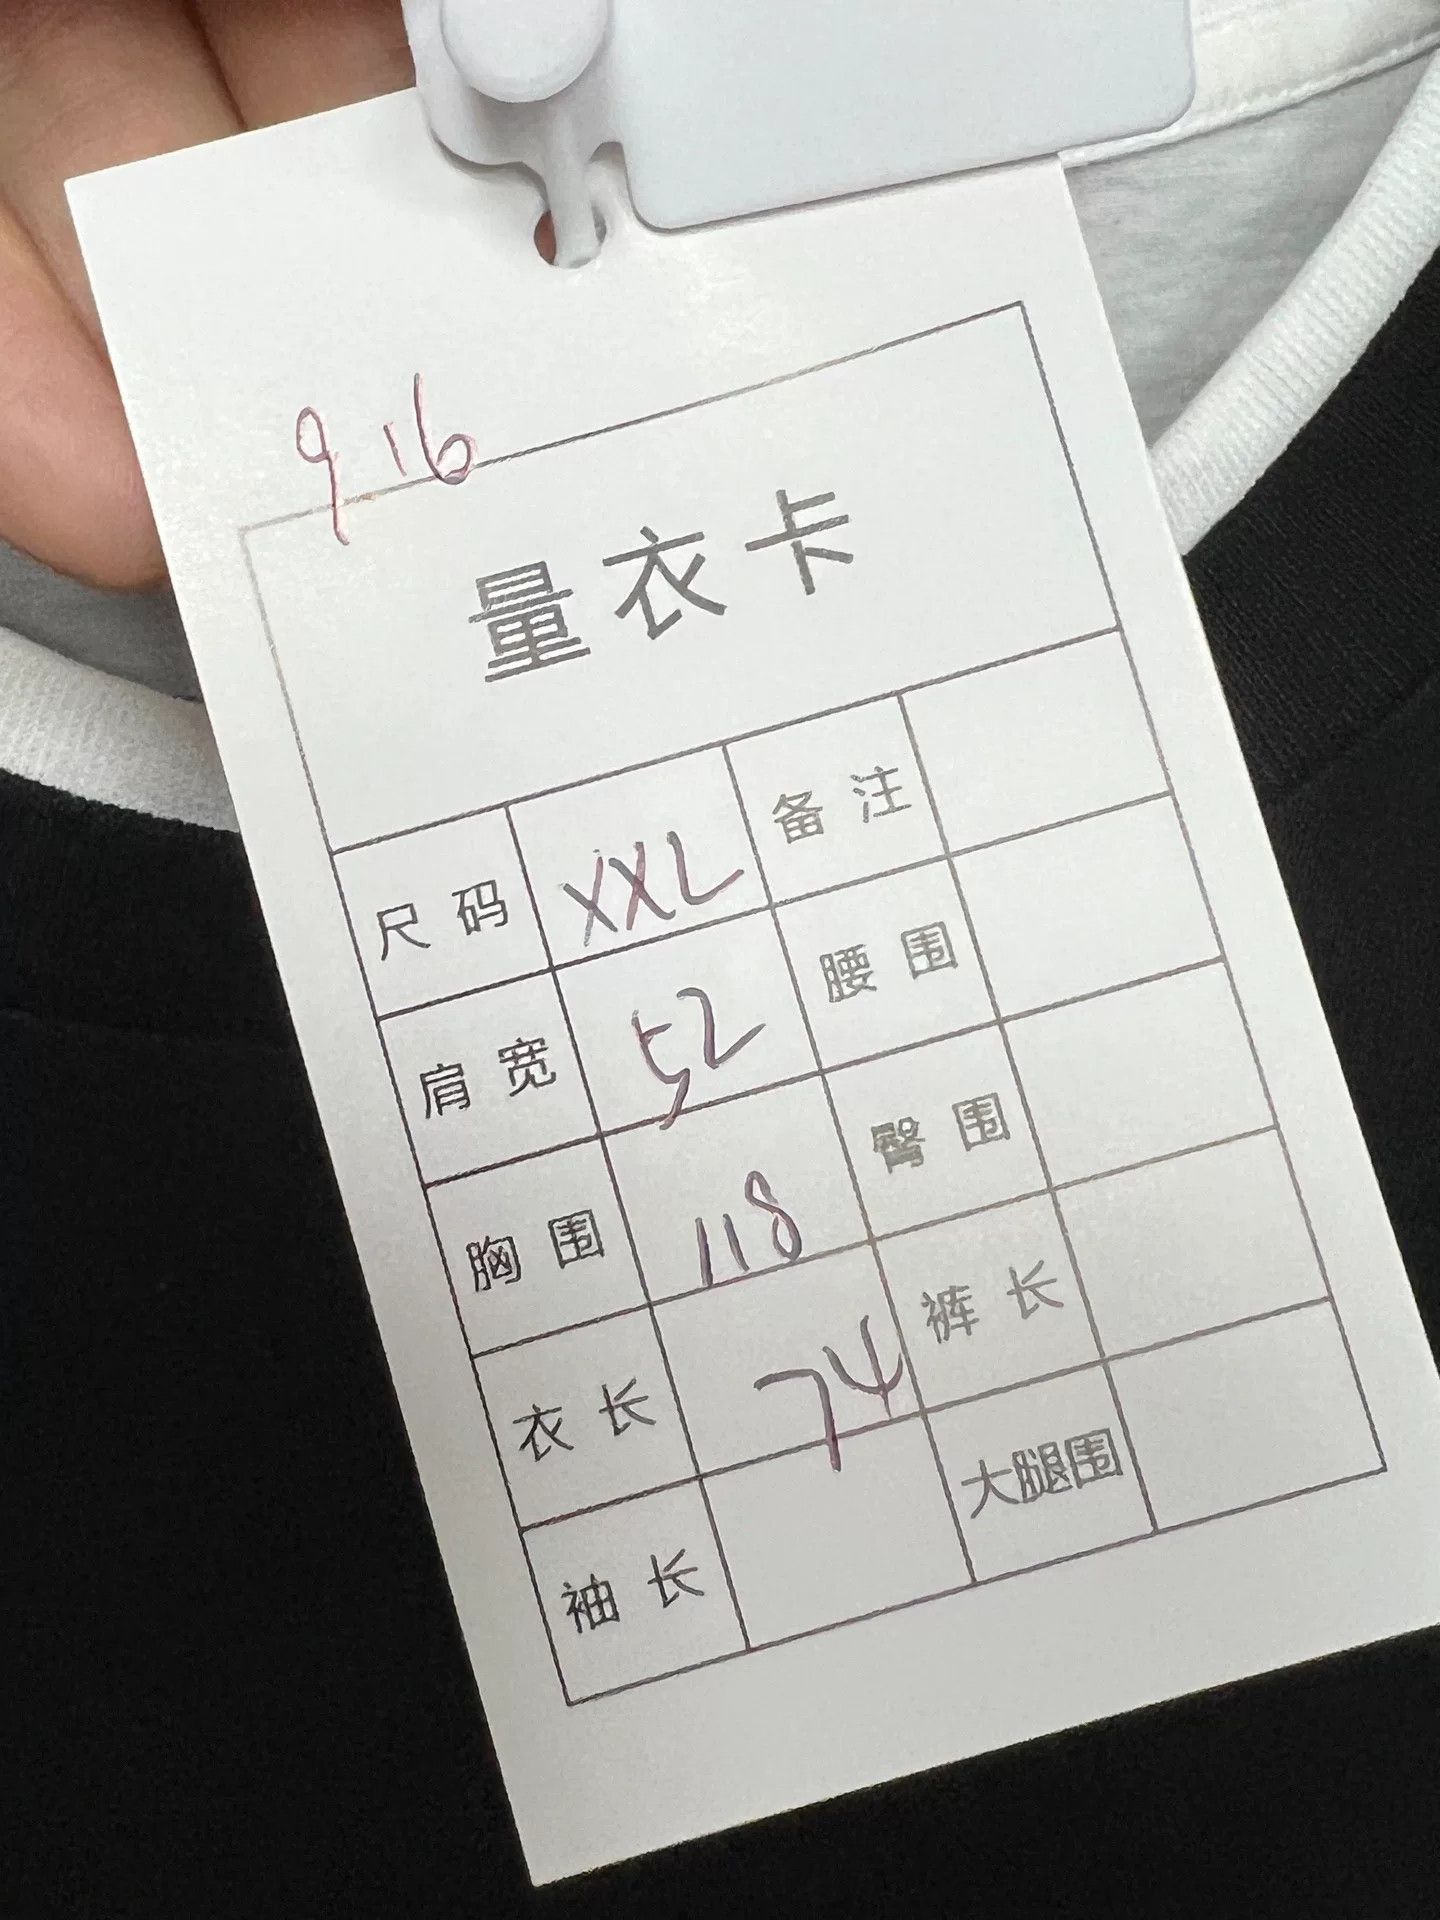 9 16
量衣卡
尺码 XXL 备注
肩宽 52 腰围
胸围 118 臀围
衣长 74 裤长
袖长 大腿围